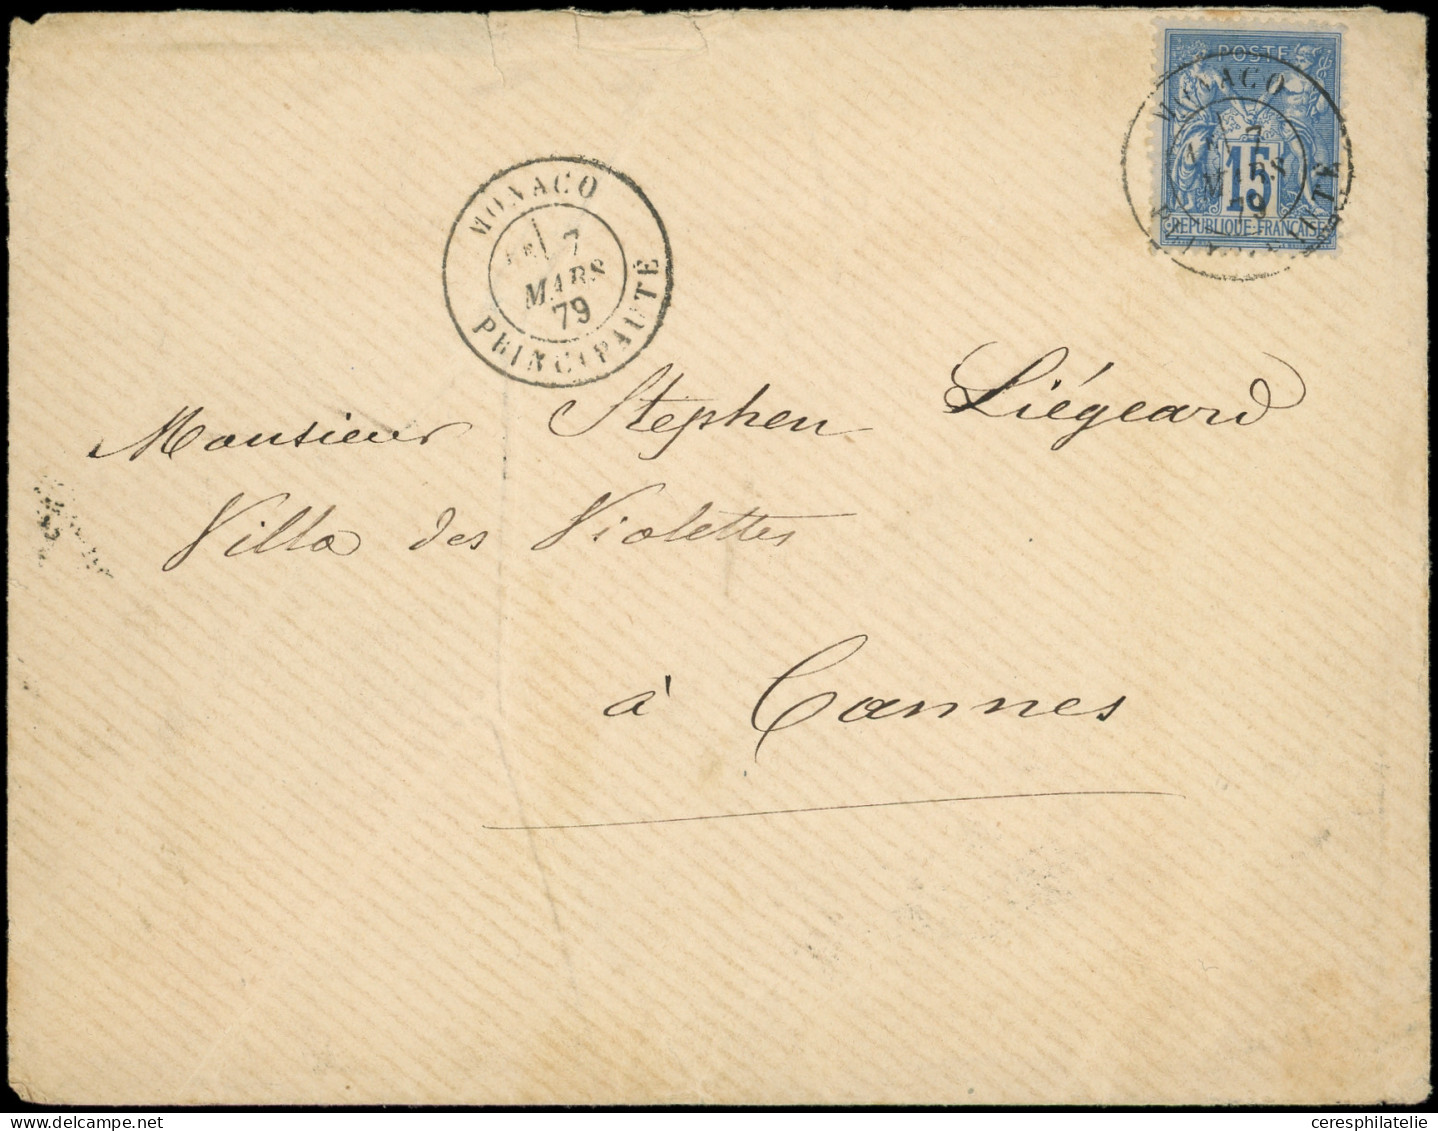 POSTE
15
REPUBLIQUE FRANÇAISE
MONACO
7
MARS
79
MONACO
7
MARS
79
PRINCIPAUTÉ
Monsieur Stephen Liégeard
Villa des Violettes
à Cannes
ceresphilatelie.com